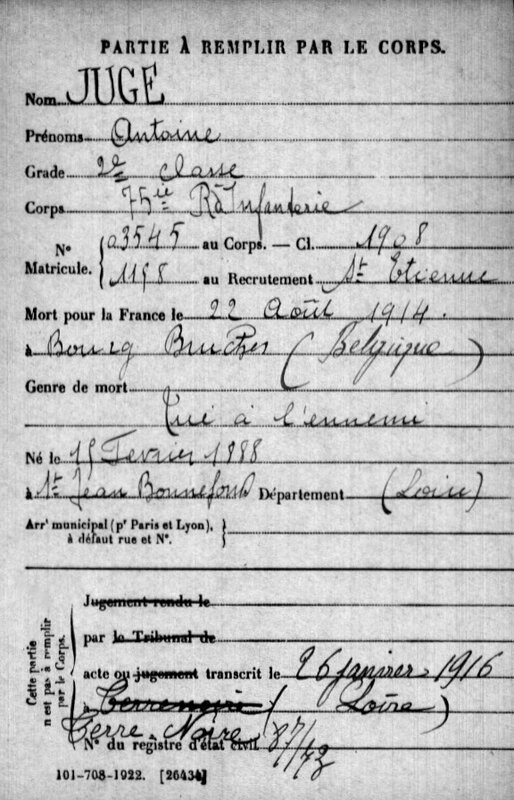 PARTIE À REMPLIR PAR LE CORPS.
Nom JUGE
Prénoms Antoine
Grade 2e classe
Corps 75ie Rt d'Infanterie
Nº Matricule. { 03545 au Corps. — Cl. 1908
1198 au Recrutement St Etienne
Mort pour la France le 22 Août 1914.
à Bourg Bruches (Belgique)
Genre de mort
Tué à l'ennemi
Né le 15 Fevrier 1888
à St Jean Bonnefond Département (Loire)
Arrt municipal (pr Paris et Lyon), }
à défaut rue et Nº.
Cette partie
n'est pas à remplir
par le Corps.
Jugement rendu le
par le Tribunal de
acte ou jugement transcrit le 26 janvier 1916
à Terrenoire (Loire)
Terre-Noire
Nº du registre d'état civil 87/72
101-708-1922. [26434]